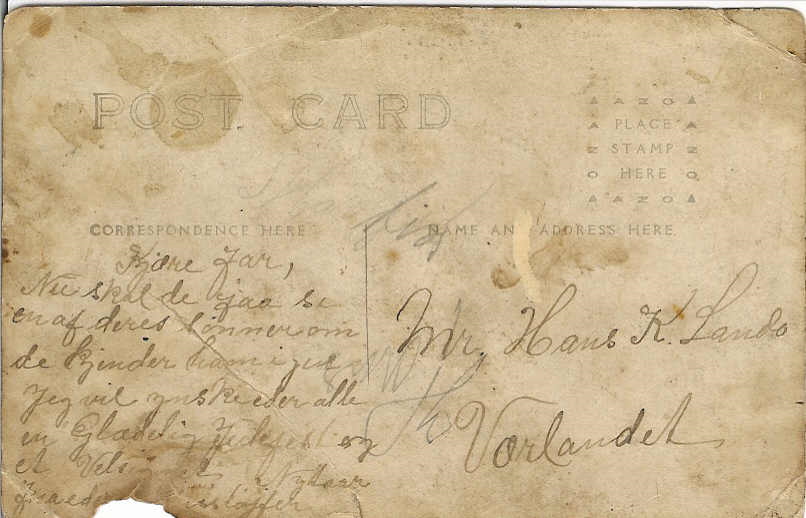 POST CARD
AZO
PLACE
STAMP
HERE
AZO
CORRESPONDENCE HERE
NAME AND ADDRESS HERE.
Kjære Far,
Nu skal de faa se
en af deres sønner om
de kjender ham igjen
Jeg vil ynske eder alle
en Glædelig Julefest og
et Nytaar
Mr. Hans K. Lando
Værlandet